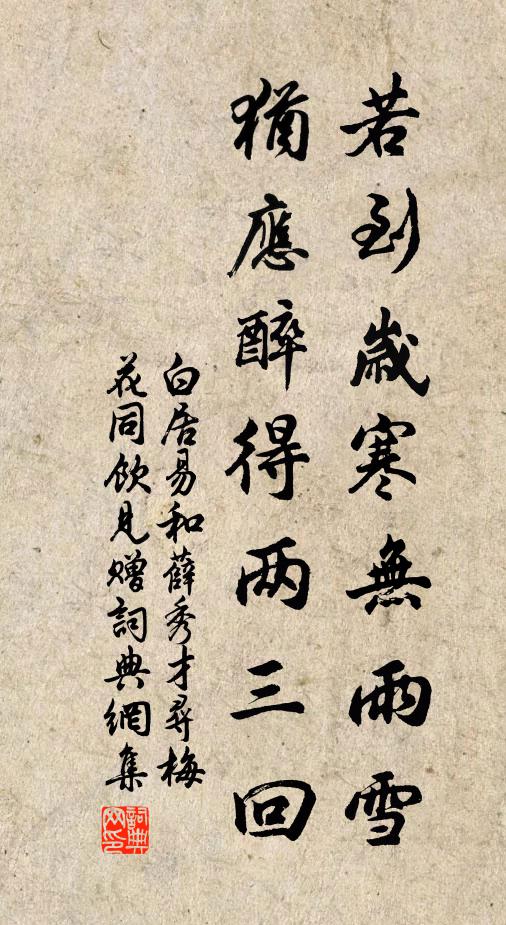 若到歲寒無雨雪
猶應醉得两三回
白居易和薛秀才尋梅
花同飲見贈詞典網集
詞典
网印